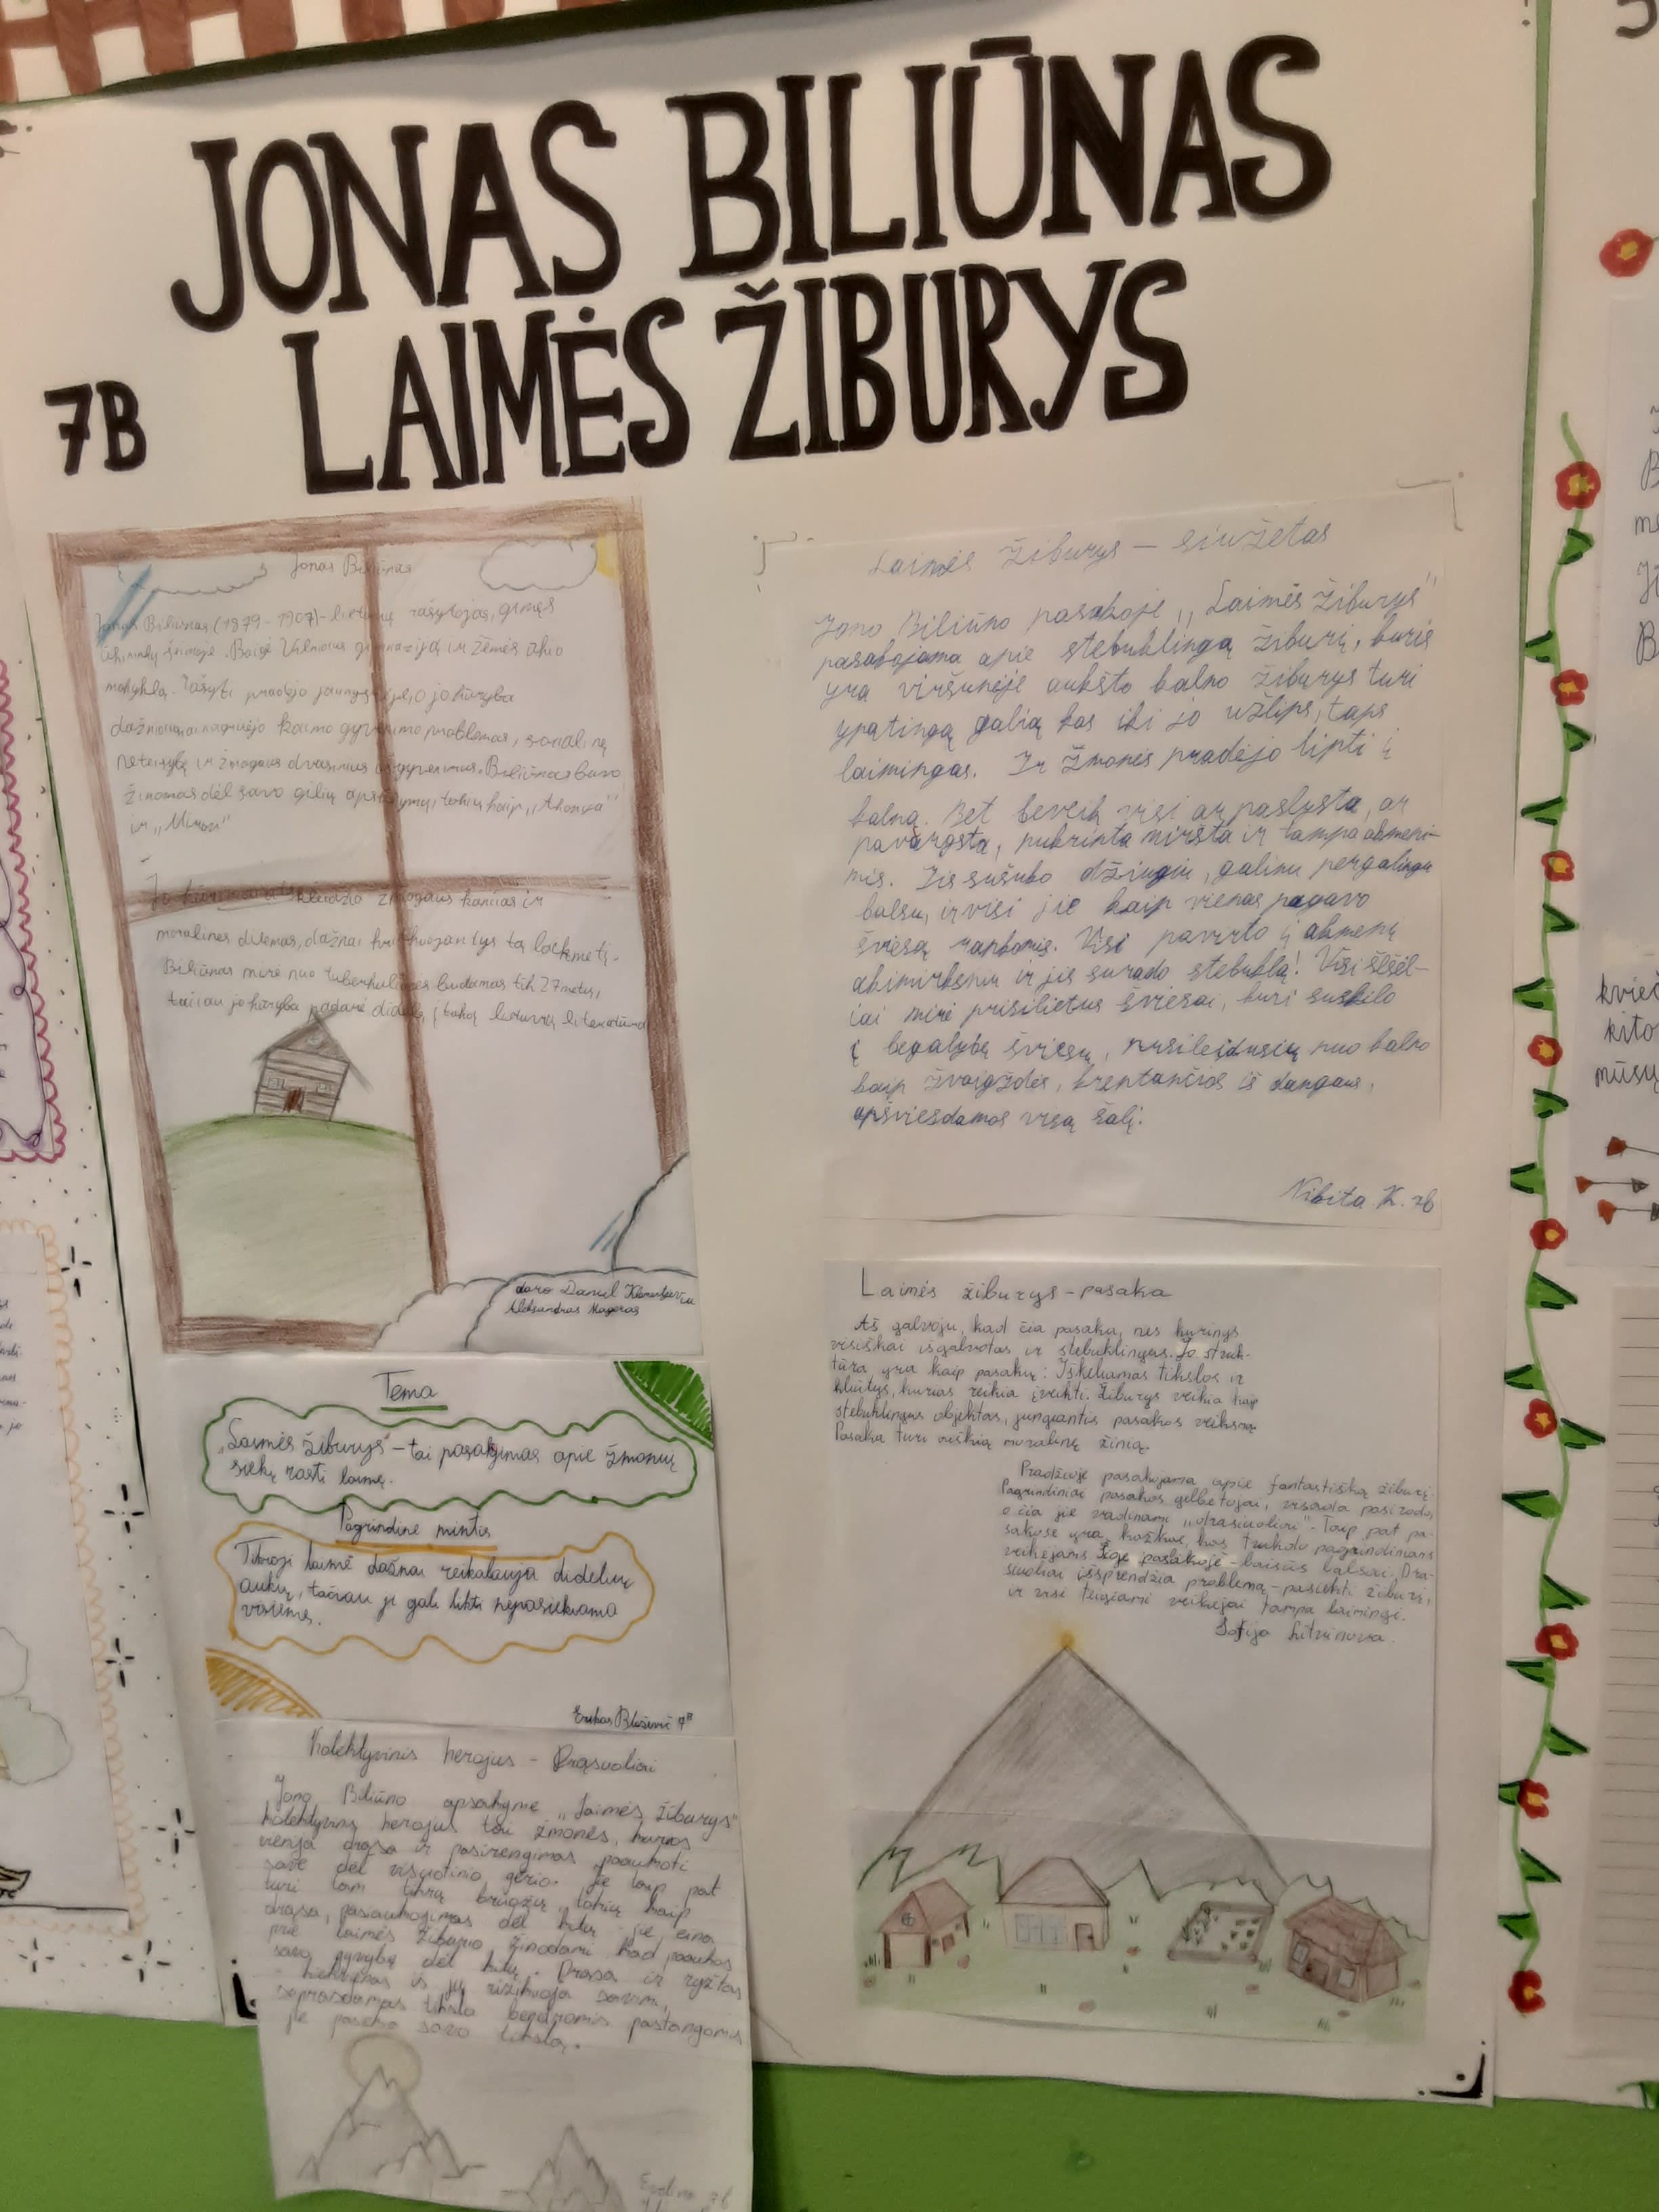 JONAS BILIŪNAS
LAIMĖS ŽIBURYS
7B
Jonas Biliūnas
Jonas Biliūnas (1879 - 1907) - lietuvių rašytojas, gimęs
ūkininkų šeimoje. Baigė Vilniaus gimnaziją ir žemės ūkio
mokyklą. Rašyti pradėjo jaunystėje, o jo kūryba
dažniausiai nagrinėjo kaimo gyvenimo problemas, socialinę
neteisybę ir žmogaus dvasinius išgyvenimus. Biliūnas buvo
žinomas dėl savo gilių apsakymų, tokių kaip,
ir „
Jo kūriniai atskleidžia žmogaus kančias ir
moralines dilemas, dažnai tą laikmetį.
Biliūnas mirė nuo tuberkuliozės budamas tik 27 metus,
tačiau jo kūryba padarė didelę įtaką lietuvių literatūrai
daro Daniel
Aleksandras
Tema
„Laimės žiburys" - tai pasakojimas apie žmonių
siekį rasti laimę.
Pagrindinė mintis
Tikroji laimė dažnai reikalauja didelių
aukų, tačiau ji gali likti nepasiekiama
visiems.
7B
Kolektyvinis herojus - Drąsuoliai
Jono Biliūno apsakyme „Laimės žiburys"
kolektyvinis herojus tai žmonės, kuriuos
vienija drąsa ir pasirengimas paaukoti
save dėl visuotinio gėrio. Jie taip pat
turi tam tikrų bruožų, tokių kaip
drąsa, pasiaukojimas dėl kitų - jie eina
prie laimės žiburio, žinodami kad paaukos
savo gyvybę dėl kitų. Drąsa ir ryžtas
- kiekvienas iš jų rizikuoja savimi,
suprasdamas tikslo bendromis pastangomis
jie pasiekė savo tikslą.
7b
Laimės žiburys - siužetas
Jono Biliūno pasakoje „Laimės žiburys"
pasakojama apie stebuklingą žiburį, kuris
yra viršunėje aukšto kalno žiburys turi
ypatingą galią kas iki jo užlips, taps
laimingas. Ir žmonės pradėjo lipti į
kalną. Bet beveik visi ar paslysta, ar
pavargsta, nukrinta miršta ir tampa akmeni-
mis. Jis sušuko džiugiu, galinu pergalingu
balsu, ir visi jie kaip vienas pagavo
šviesą rankomis. Visi pavirto į akmenį
akimirksniu ir jis surado stebuklą! Visi
mirė prisilietus šviesai, kuri suskilo
į begalybę šviesų, nusileidusių nuo kalno
kaip žvaigždės, krentančios iš dangaus,
apšviesdamos visą šalį.
Nikita K. 7b
Laimės žiburys - pasaka
Aš galvoju, kad čia pasaka, nes kurinys
visiškai išgalvotas ir stebuklingas. Jo struk-
tūra yra kaip pasakų: Iškeliamas tikslas ir
kliutys, kurias reikia įveikti. Žiburys veikia kaip
stebuklingas objektas, jungiantis pasakos veiksmą
Pasaka turi aiškią moralinę žinią.
Pradžioje pasakojama apie fantastišką žiburį.
Pagrindiniai pasakos gelbėtojai, visada pasirodo,
o čia jie vadinami „drasuoliai". Taip pat pa-
sakose yra kažkas, kas trukdo pagrindiniams
veikėjams. Šioje pasakoje - baisūs balsai. Dra-
suoliai išsprendžia problemą - pasiekti žiburį,
ir visi teigiami veikėjai tampa laimingi.
Sofija Litvinova.
kvieč
kito
mūsų